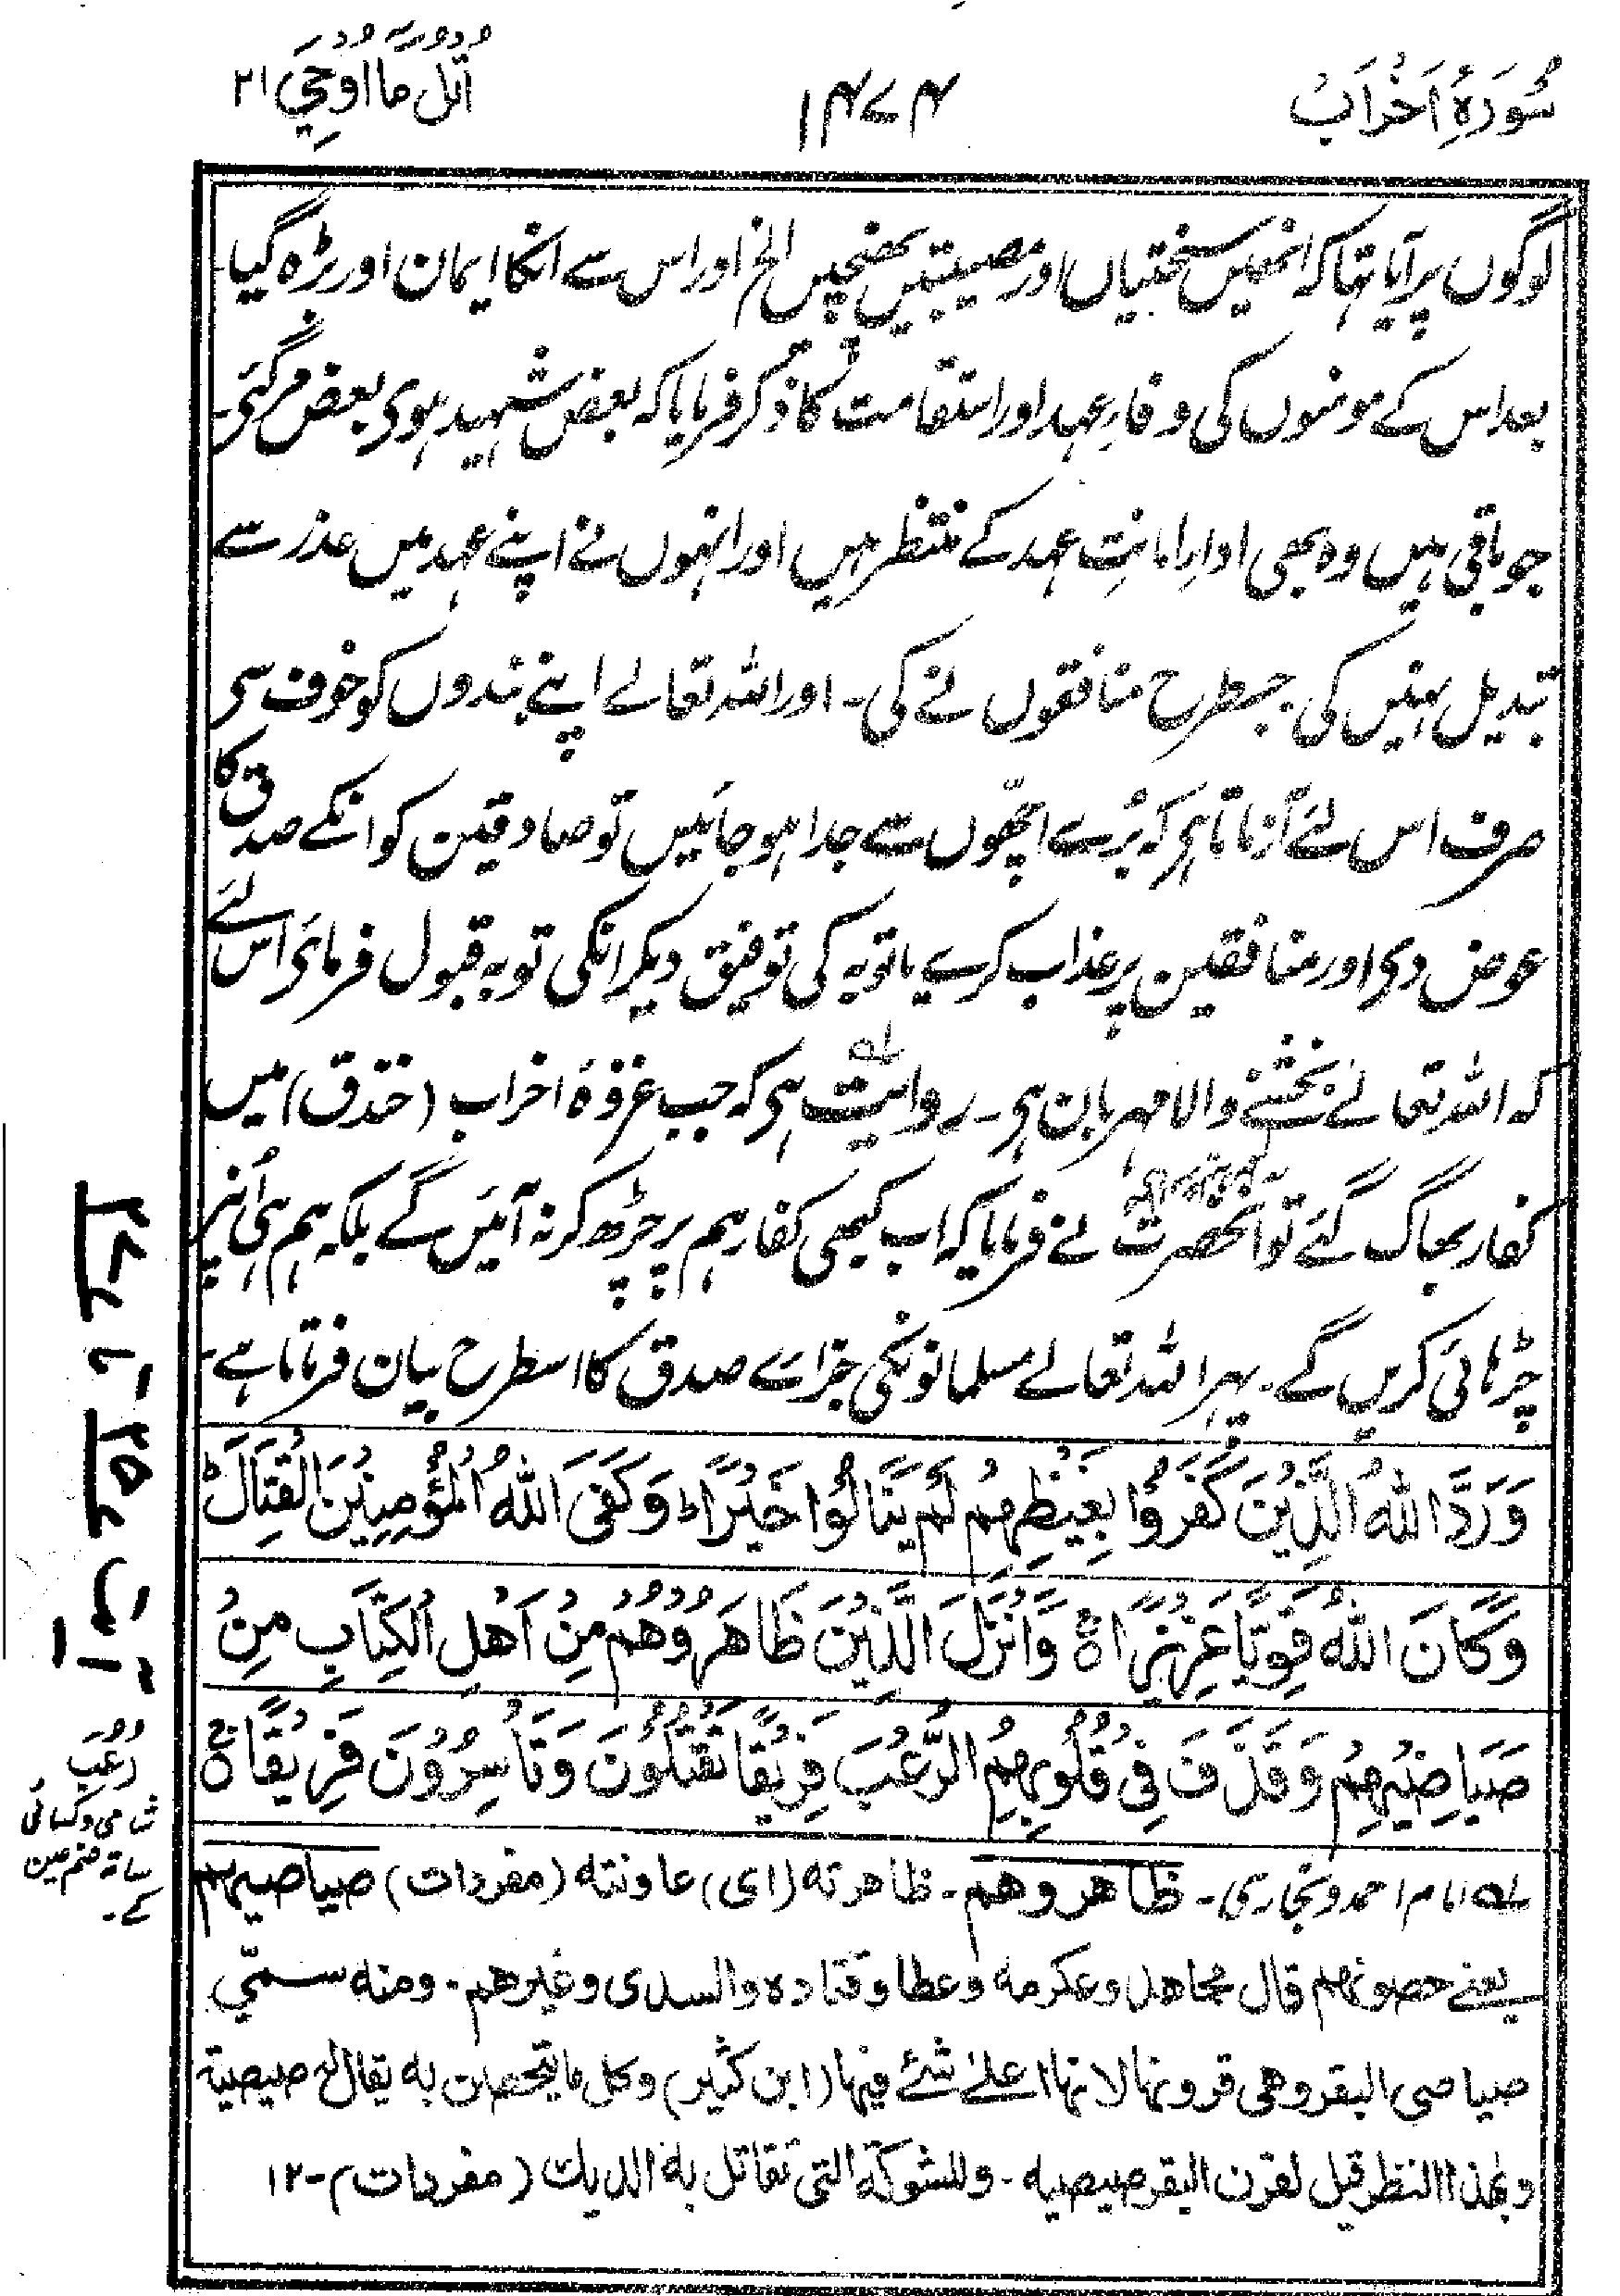 سُورَۂِ اَحْزَاب
۱۴۷۴
اُتْلُ مَا اُوْحِيَ ۲۱
لوگوں پر آیا تہا کہ انھیں سختیاں اور مصیبتیں پھنچیں الخ اور اس سے انکا ایمان اور بڑہ گیا
بعد اس کے مومنوں کی وفاء عہد اور استقامت کا ذکر فرمایا کہ بعض شہید ہوی بعض مرگئی۔
جو باقی ہیں وہ بھی اداء امانتِ عہد کے منتظر ہیں اور انہوں نے اپنے عہد میں عذر سے
تبدیل نہیں کی جسطرح منافقوں نے کی۔ اور اللہ تعالے اپنے بندوں کو خوف سی
صرف اس لئے آزماتا ہی کہ بُرے اچھّوں سے جدا ہو جائیں تو صادقین کو انکے صدق کا
عوض دی اور منافقین پر عذاب کرے یا توبہ کی توفیق دیکر انکی توبہ قبول فرمائی اس لئے
کہ اللہ تعالے بخشنے والا مہربان ہی۔ روایت ہی کہ جب غزوۂ احزاب (خندق) میں
کفار بھاگ گئے تو آنحضرت نے فرمایا کہ اب کبھی کفار ہم پر چڑھ کر نہ آئیں گے بلکہ ہم ہی اُنپر
چڑہائی کریں گے۔ پہر اللہ تعالے مسلمانونکی جزاے صدق کا اسطرح بیان فرماتا ہے۔
وَرَدَّ اللّٰهُ الَّذِيْنَ كَفَرُوْا بِغَيْظِهِمْ لَمْ يَنَالُوْا خَيْرًاط وَكَفَى اللّٰهُ الْمُؤْمِنِيْنَ الْقِتَالَ ط
وَكَانَ اللّٰهُ قَوِيًّا عَزِيْزًا ۝ وَاَنْزَلَ الَّذِيْنَ ظَاهَرُوْهُمْ مِنْ اَهْلِ الْكِتَابِ مِنْ
صَيَاصِيْهِمْ وَقَذَفَ فِيْ قُلُوْبِهِمُ الرُّعْبَ فَرِيْقًا تَقْتُلُوْنَ وَتَأْسِرُوْنَ فَرِيْقًا ۝
؎۱ امام احمد و بخاری۔ ظاهروهم۔ ظاهرته (ای) عاونته (مفردات) صیاصیهم
یعنے حصونهم قال مجاهد و عکرمه و عطا و قتاده والسدی وغیرهم۔ ومنه سمّی
صیاصی البقر وهی قرونها لانها اعلیٰ شئے فیها (ابن کثیر) وکل ما یتحصن به یقال له صیصیة
وبهذا النظر قیل لقرن البقر صیصیه۔ وللشوکة التی تقاتل به الدیك (مفردات)۔۱۲
رُعُب
شامی و کسائی
ساتہ ضم عین
کے۔